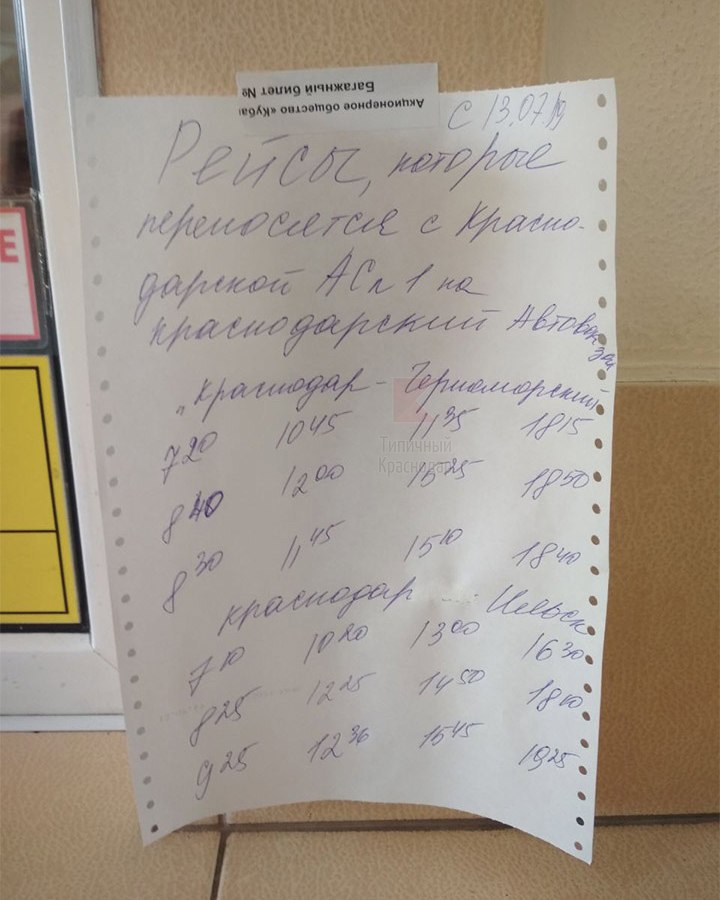 Акционерное общество «Куба
Багажный билет №
С 13.07.19
Рейсы, которые
переносятся с Красно-
дарской АС №1 на
краснодарский Автовокзал
"Краснодар - Черноморский
7 20 10 45 11 35 18 15
8 40 12 00 15 25 18 50
8 30 11 45 15 10 18 40
краснодар Ильск
7 10 10 20 13 00 16 30
8 25 12 25 14 50 18 10
9 25 12 36 15 45 19 25
Типичный
Краснодар
Е